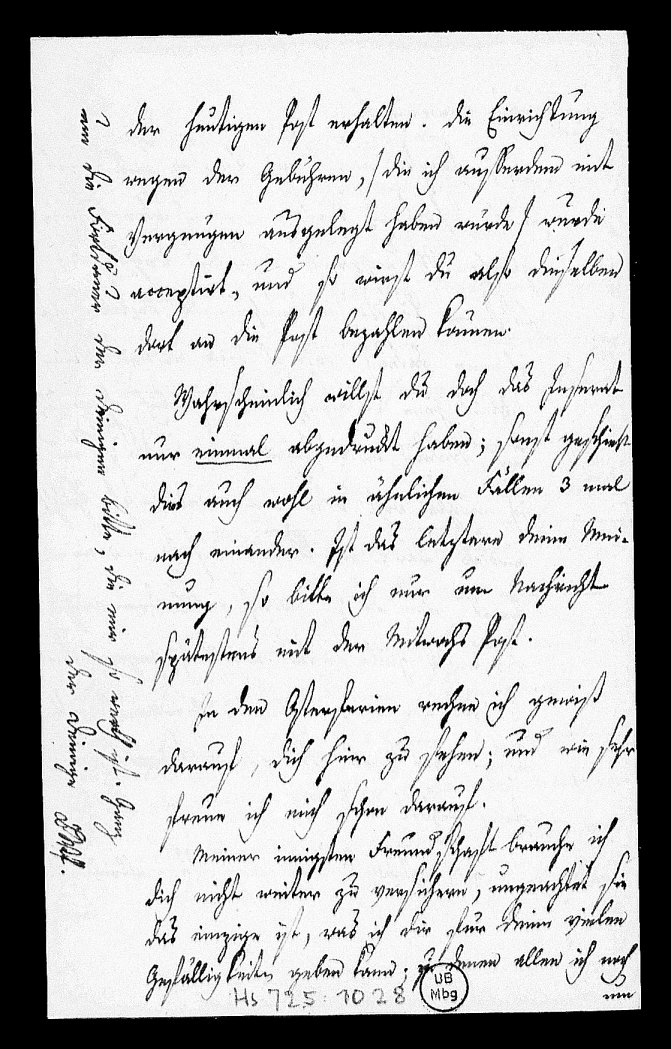 der heutigen Post erhalten. Die Einrichtung
wegen der Gebühren, /die ich ausserdem mit
Vergnügen ausgelegt haben würde/ wurde
acceptirt, und so wirst du also dieselben
dort an die Post bezahlen können.
Wahrscheinlich willst du doch das Inserat
nur einmal abgedruckt haben; sonst geschieht
dies auch wohl in ähnlichen Fällen 3 mal
nach einander. Ist das letztere deine Mei-
nung, so bitte ich nur um Nachricht
spätestens mit der Mitwochs Post.
In den Osterferien rechne ich gewiß
darauf, dich hier zu sehen; und wie sehr
freue ich mich schon darauf.
Meiner innigsten Freundschaft brauche ich
dich nicht weiter zu versichern, ungeachtet sie
das einzige ist, was ich dir für deine vielen
Gefälligkeiten geben kann; zu denen allen ich noch
um
die der Deinigen bitte, die mir so ist. Ganz
der Deinige
Hs 725: 1028
UB
Mbg